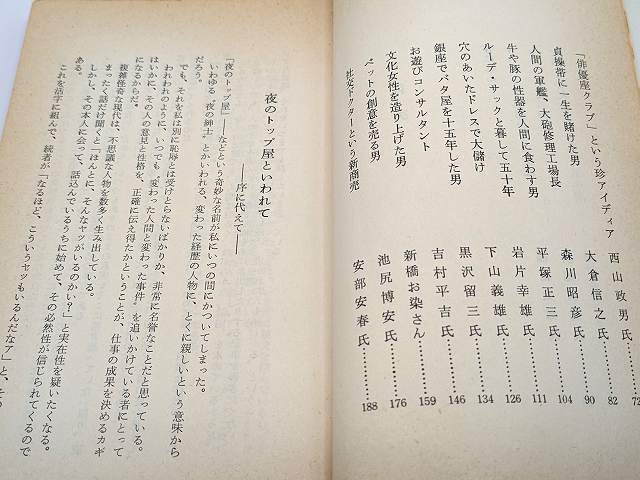 「俳優座クラブ」という珍アイディア 西山政男氏………72
貞操帯に一生を賭けた男 大倉信之氏………82
人間の軍艦、大砲修理工場長 森川昭彦氏………90
牛や豚の性器を人間に食わす男 平塚正三氏………104
ルーデ・サックと暮して五十年 岩片幸雄氏………111
穴のあいたドレスで大儲け 下山義雄氏………126
銀座でバタ屋を十五年した男 黒沢留三氏………134
お遊びコンサルタント 吉村平吉氏………146
文化女性を造り上げた男 新橋お染さん………159
ペットの創意を売る男 池尻博安氏………176
社交ドクターという新商売 安部安春氏………188
夜のトップ屋といわれて
――序に代えて――
「夜のトップ屋」――などという奇妙な名前が私にいつの間にかついてしまった。
いわゆる〝夜の紳士〟とかいわれる、変わった経歴の人物に、とくに親しいという意味から
だろう。
でも、それを私は別に恥辱とは受けとらないばかりか、非常に名誉なことだと思っている。
われわれのように、いつでも〝変わった人間と変わった事件〟を追いかけている者にとって
はいかに、その人の意見と性格を、正確に伝え得たかということが、仕事の成果を決めるカギ
になるからだ。
複雑怪奇な現代は、不思議な人物を数多く生み出している。
まったく話だけ聞くと「ほんとに、そんなヤツがいるのかい？」と実在性を疑いたくなる。
しかし、その本人に会って、話込んでいるうちに始めて、その必然性が信じられてくるので
ある。
これを活字に組んで、読者が「なるほど、こういうヤツもいるんだなア」と、